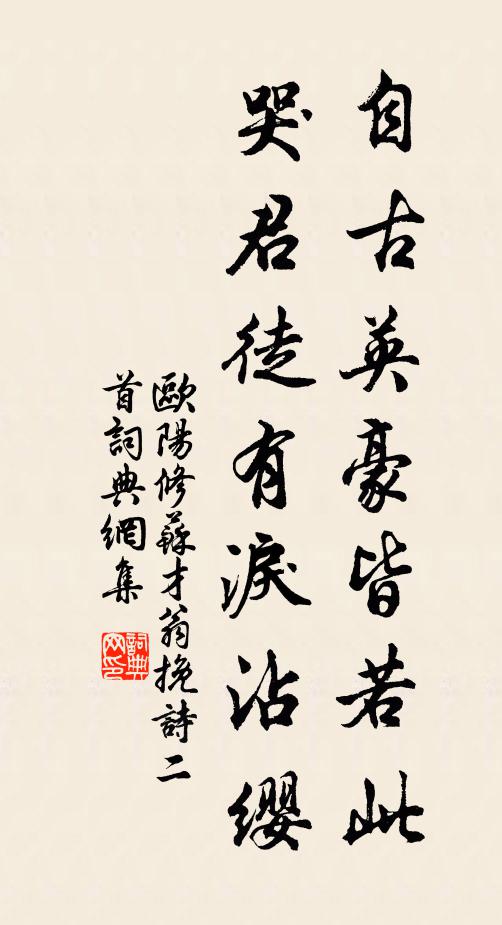 自古英豪皆若此
哭君徒有淚沾缨
歐陽修蘇才翁挽詩二
首詞典網集
詞典
网印